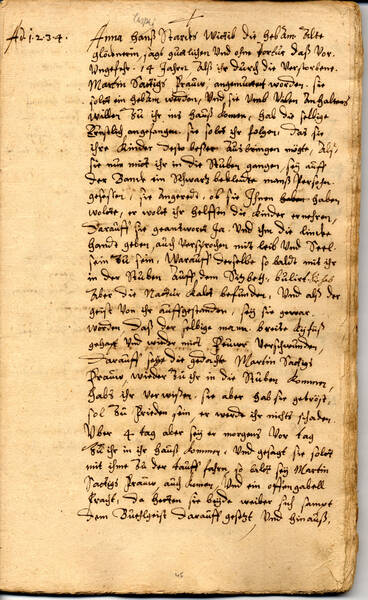 Caspar
Ad. 1. 2. 3. 4. Anna Hanß Starckers Wittib die hebAm Alte
sagt guetlichen Und ohne Tortur daß Vor
Ungefehr 14 Jahren Alß ihr durch die Verstorbene
Martin Frauw, angemuetet worden, sie
solt ein hebAm werden, Und sie Umb Vilen Anhaltens
willen Zu ihr ins hauß komen, hab die selbige
angefangen, sie solt ihr folgen, das sie
ihre Kinder desto besser Ausbringen mögte, Alß
sie nun mit ihr in die Stuben gangen, sey auff
der Banck ein Schwartz bekleidte manß Person
gesessen, sie Angeredt, ob sie Ihnen haben
wolte, er wolt ihr helffen die Kinder ernehren,
Darauff sie geantwort ja. Und ihm die lincke
handt geben, auch Versprochen mit leib Und Seel
sein Zu sein, Warauff derselbe so baldt mit ihr
in der Stuben Auff dem bulirt
Aber die Natur Kalt befunden, Und alß der
geist Von ihr auffgestanden, sey sie gewar
worden Daß der selbige mann, breite
gehapt Und wider mit Feuwer Verschwunden,
Darauff sehe die gedachte Martin
Frauw, wieder Zu ihr in die Stuben kommen,
habs ihr Verwissen, sie aber hab sie getröst,
sol Zu frieden sein er werde ihr nichts schaden.
Uber 4 tag aber sey er morgens Vor tag
Zu ihr in ihr hauß kommen, Und gesagt sie solt
mit ihme Zu der tauff fahren, so baldt sey Martin
Frauw, auch komen, Und ein offengabell
bracht, da hetten sie beyde weiber sich sampt
dem Buelgeist Darauff gesetzt Und hinauß,